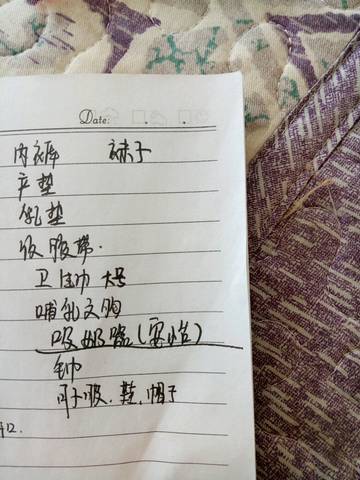 Date: . .
内裤 袜子
产垫
乳垫
收服带.
卫生巾 大号
哺乳文胸
吸奶器
钟
月子服.鞋.帽子
12.